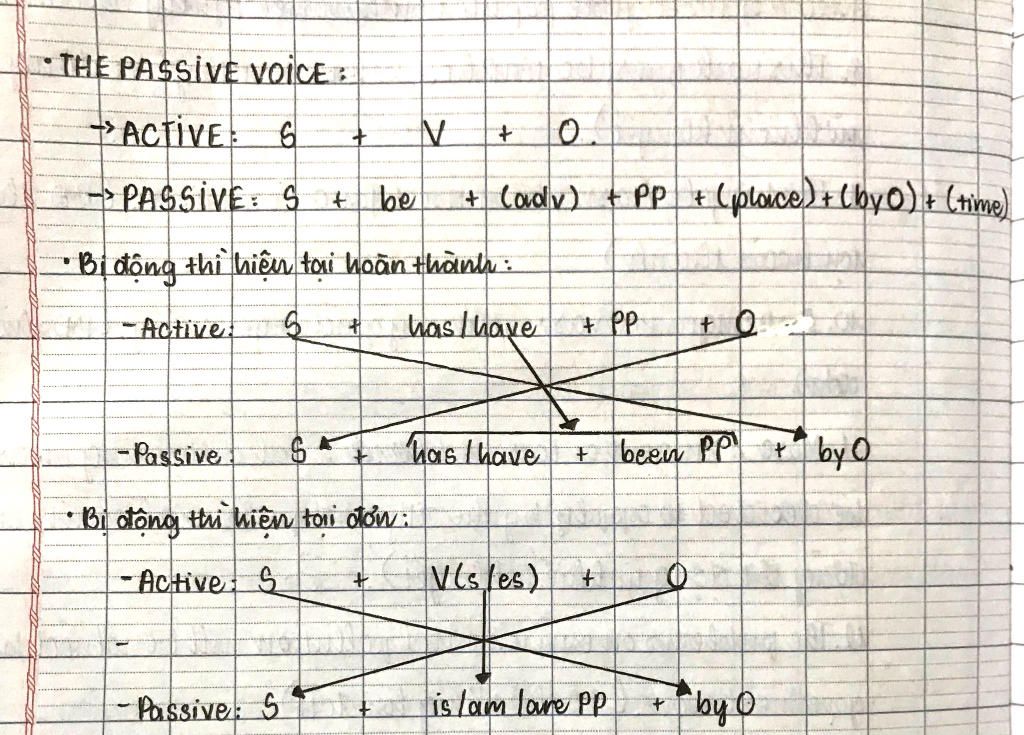 • THE PASSIVE VOICE :
→ ACTIVE : S + V + O .
→ PASSIVE : S + be + (adv) + PP + (place) + (by O) + (time)
• Bị động thì hiện tại hoàn thành :
- Active : S + has / have + PP + O
- Passive : S + has / have + been PP + by O
• Bị động thì hiện tại đơn :
- Active : S + V(s / es) + O
-
- Passive : S + is / am / are PP + by O